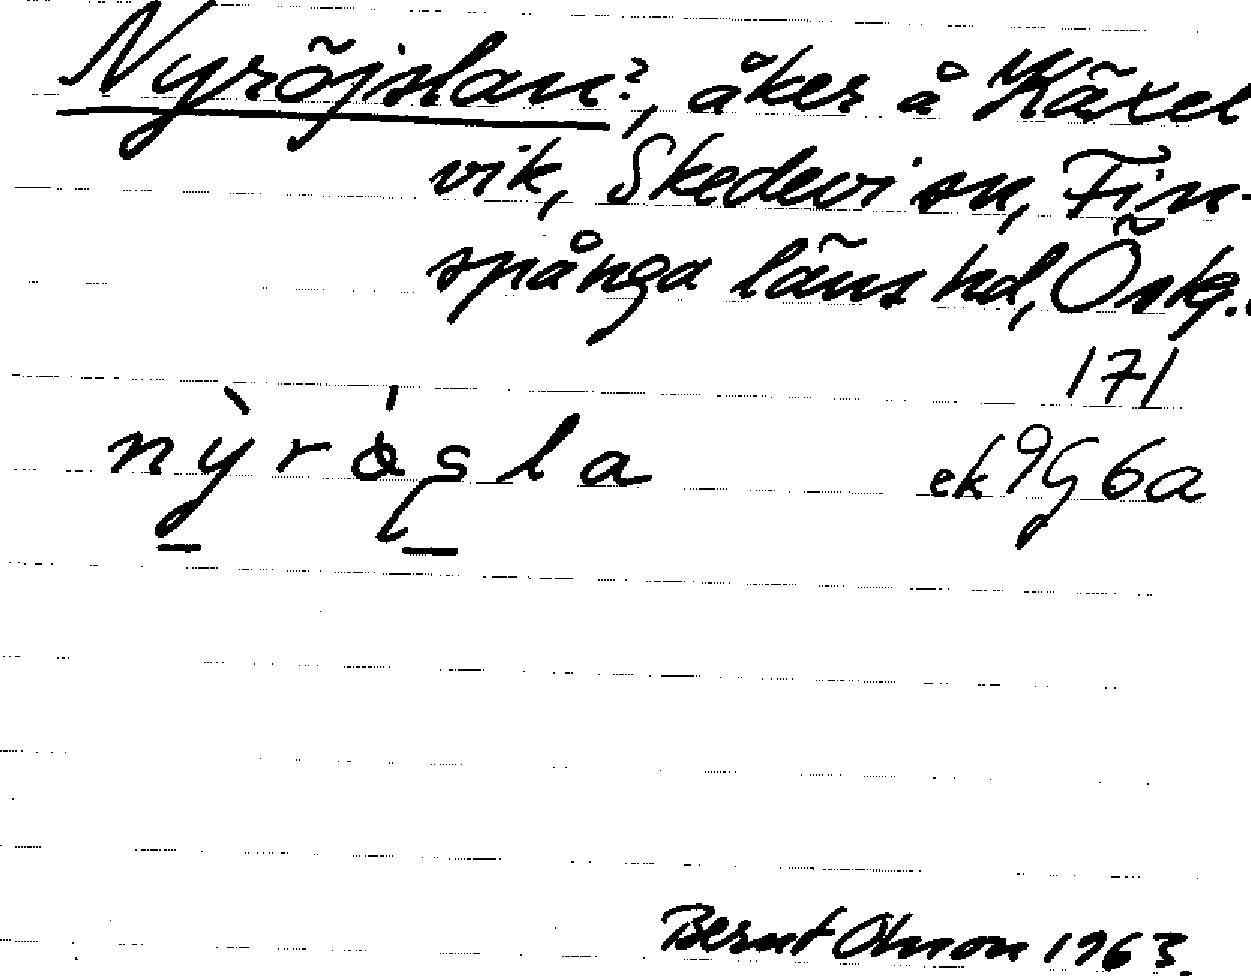 Nyröjslan?, åker å Käxel
vik, Skedevi sn, Fin-
spånga läns hd, Ösg.
171
nỳròsla ek 9G6a
Bernt Olsson 1963.